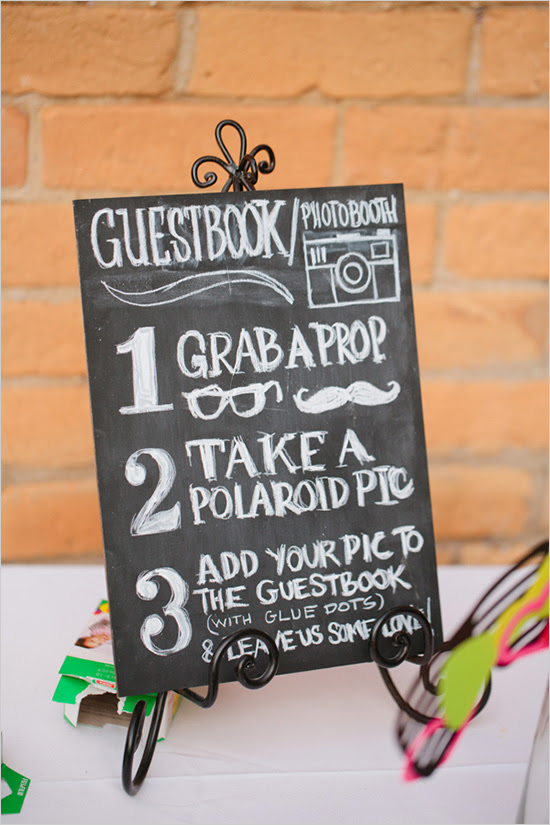 GUESTBOOK/ PHOTOBOOTH
1 GRAB A PROP
2 TAKE A
POLAROID PIC
3 ADD YOUR PIC TO
THE GUESTBOOK
(WITH GLUE DOTS)
& LEAVE US SOME LOVE!